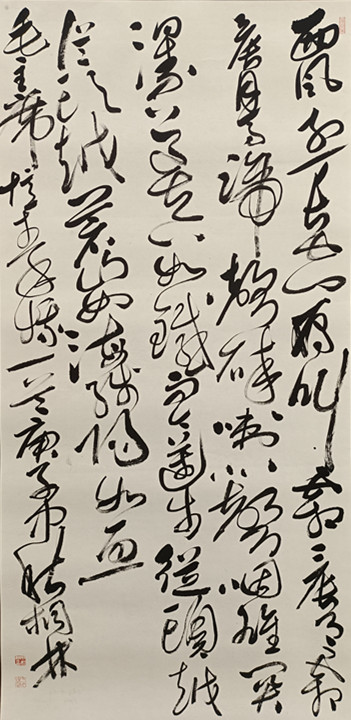 西風烈長空雁叫霜晨月霜
晨月馬蹄聲碎喇叭聲咽雄關
漫道真如鐵而今邁步從頭越
從頭越蒼山如海殘陽如血
毛主席憶秦娥一首庚子桐林